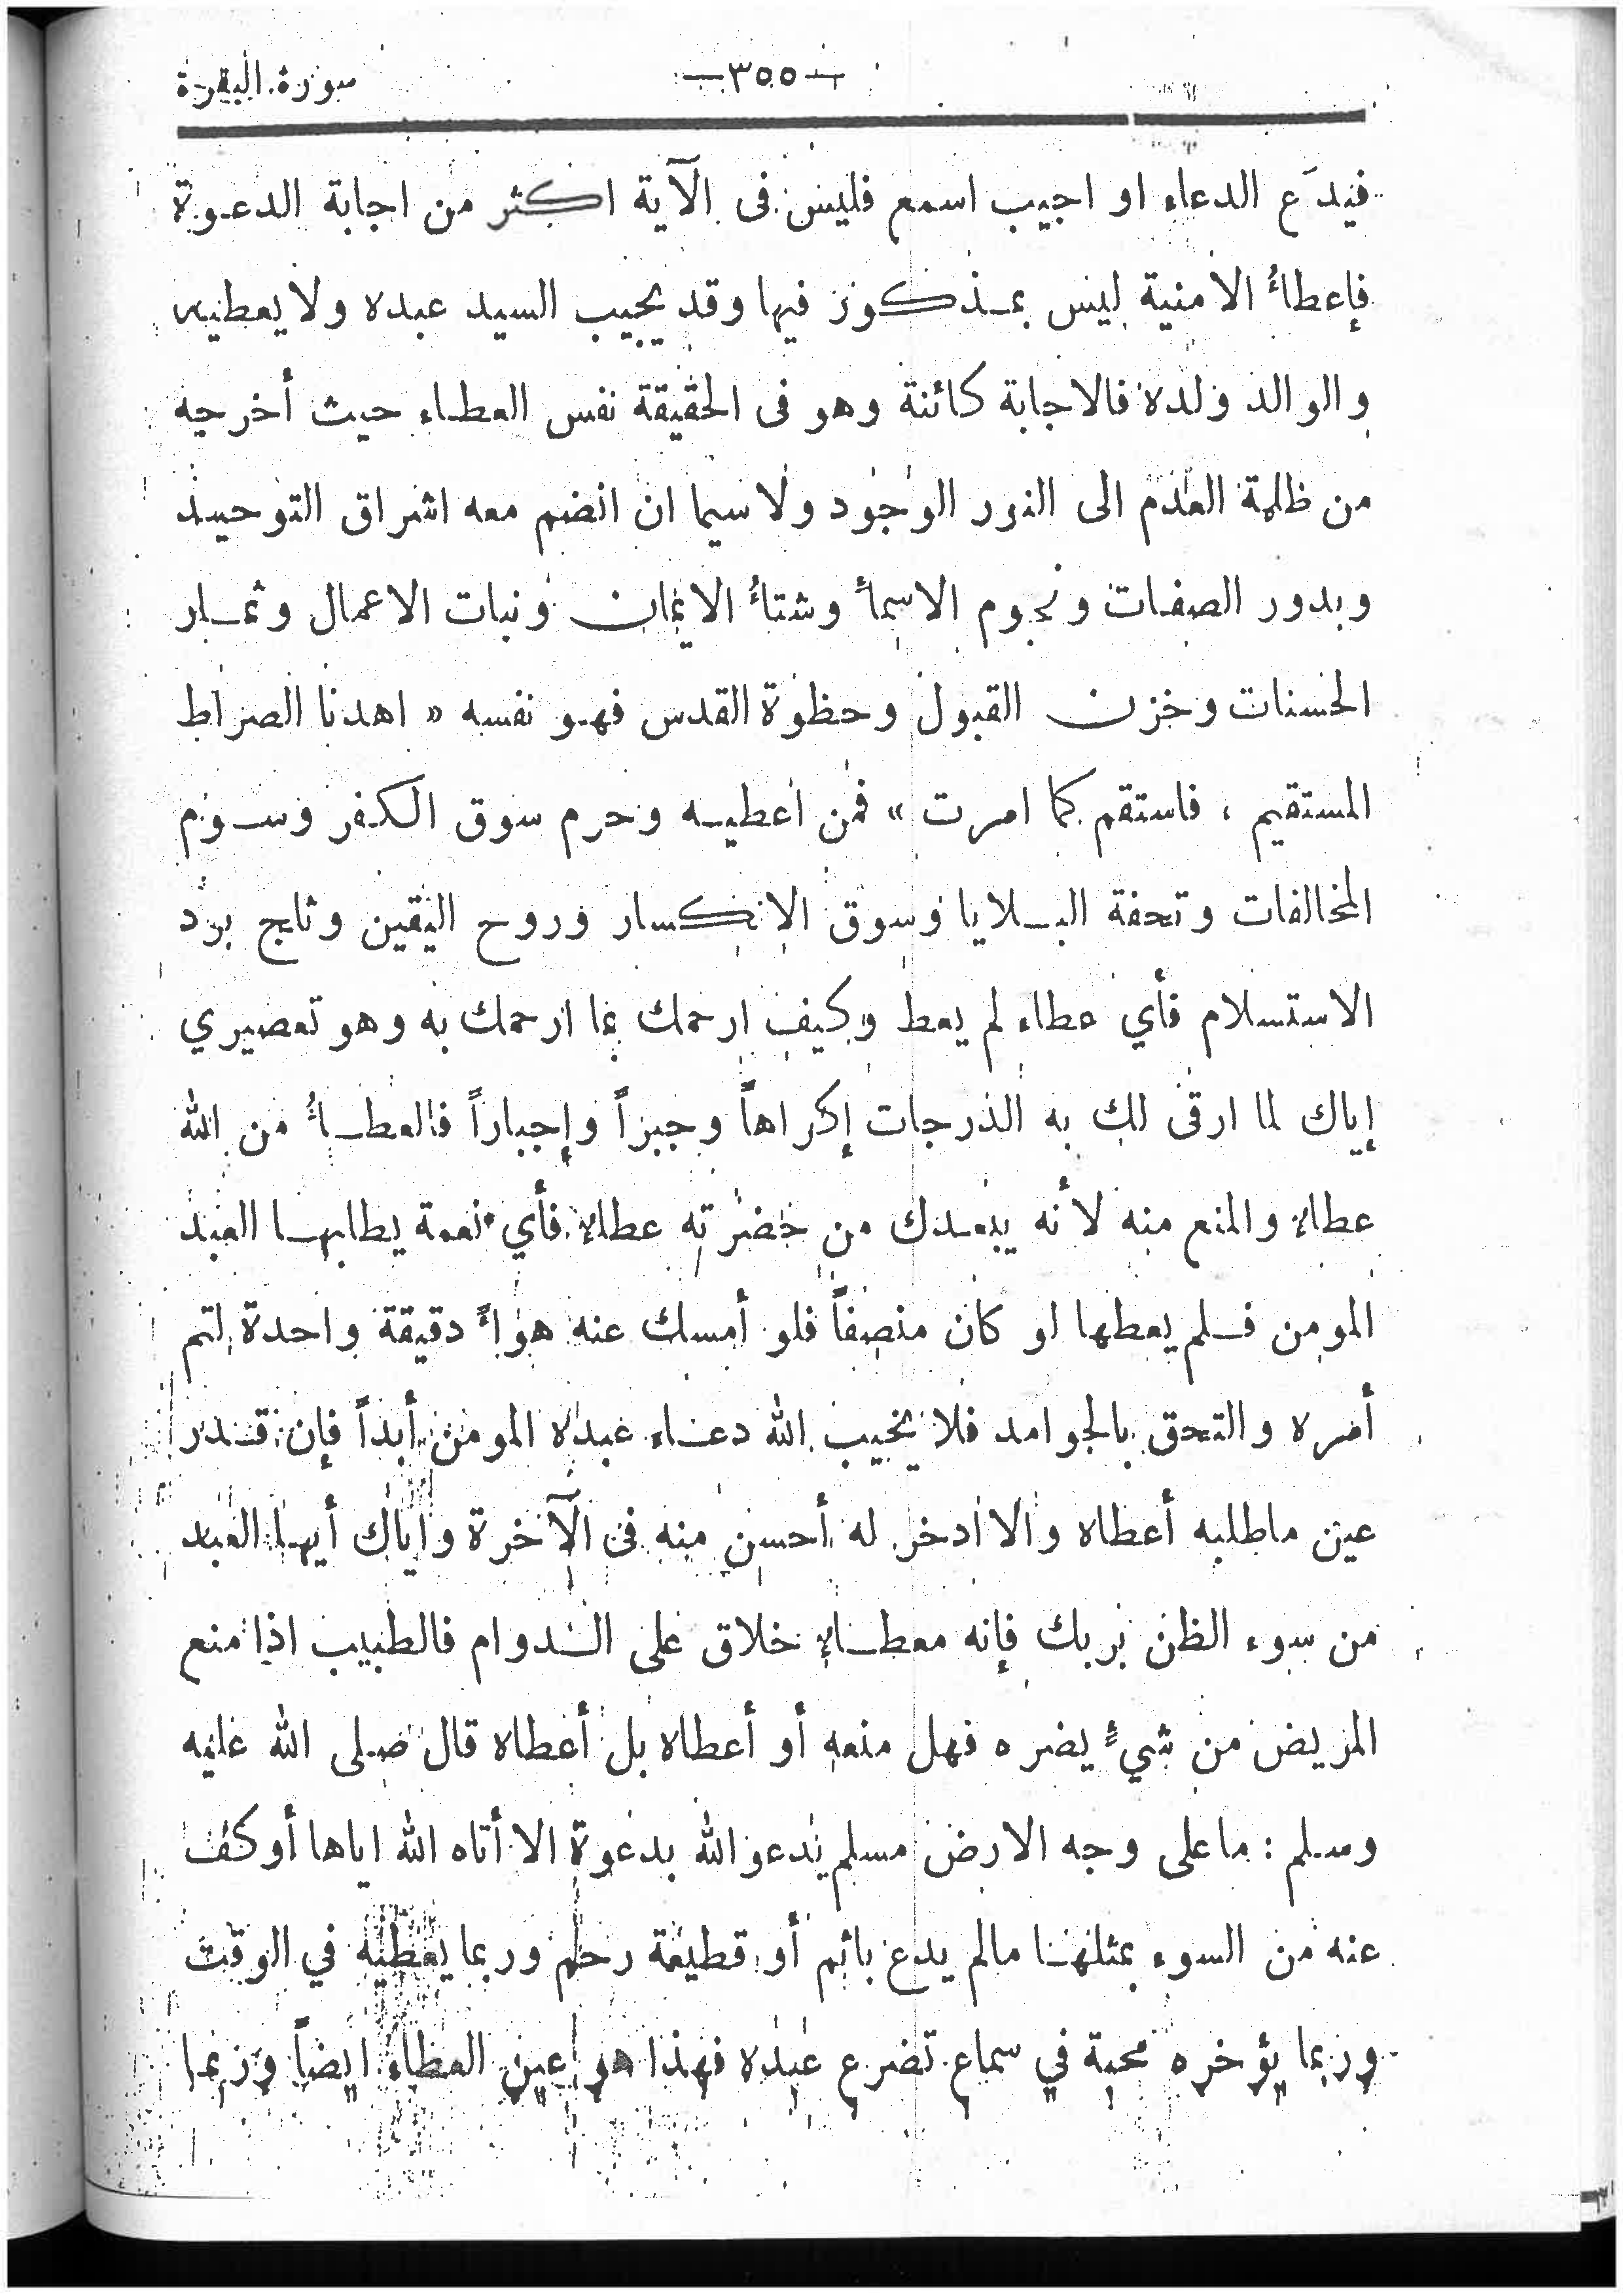 سورة البقرة
—٣٥٥—
فيدَع الدعاء او اجيب اسمع فليس فى الآية اكثر من اجابة الدعوة
فإعطاءُ الامنية ليس بمذكور فيها وقد يجيب السيد عبده ولا يعطيه
والوالد ولده فالاجابة كائنة وهو فى الحقيقة نفس العطاء حيث أخرجه
من ظلمة العدم الى النور الوجود ولاسيما ان انضم معه اشراق التوحيد
وبدور الصفات ونجوم الاسماءُ وشتاءُ الايمان ونبات الاعمال وثمار
الحسنات وخزن القبول وحظوة القدس فهو نفسه « اهدنا الصراط
المستقيم ، فاستقم كما امرت » فمن اعطيه وحرم سوق الكفر وسوم
المخالفات وتحفة البلايا وسوق الانكسار وروح اليقين وثلج برد
الاستسلام فأي عطاء لم يعط وكيف ارحمك بما ارحمك به وهو تعصيري
إياك لما ارقى لك به الدرجات إكراهاً وجبراً وإجباراً فالعطاءُ من الله
عطاء والمنع منه لأنه يبعدك من حضرته عطاء فأي نعمة يطلبها العبد
المومن فلم يعطها لو كان منصفاً فلو أمسك عنه هواءً دقيقة واحدة لتم
أمره والتحق بالجوامد فلا يخيب الله دعاء عبده المومن أبداً فإن قدر
عين ماطلبه أعطاه والا ادخر له أحسن منه فى الآخرة واياك أيها العبد
من سوء الظن بربك فإنه معطاء خلاق على الدوام فالطبيب اذا منع
المريض من شيءٍ يضره فهل منعه أو أعطاه بل أعطاه قال صلى الله عليه
وسلم : ما على وجه الارض مسلم يدعو الله بدعوة الا أتاه الله اياها أو كف
عنه من السوء بمثلها مالم يدع باثم أو قطيعة رحم وربما يعطيه في الوقت
وربما يؤخره محبة في سماع تضرع عبده فهذا هو عين العطاء ايضاً وربما